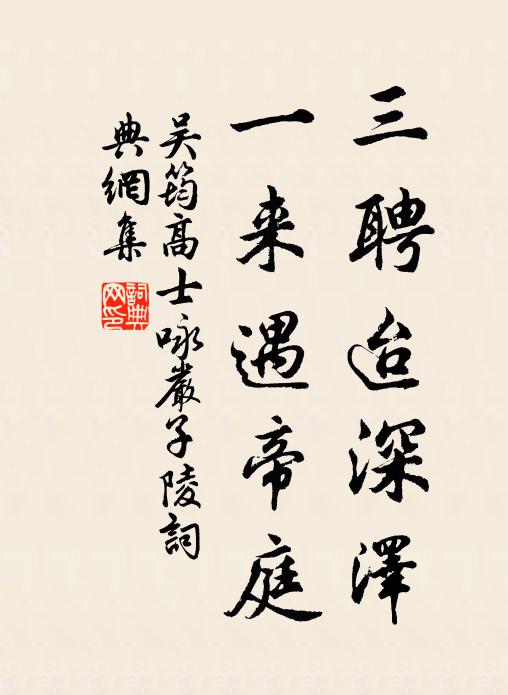 三聘迨深澤
一来遇帝庭
吴筠高士咏嚴子陵詞
典網集
詞典
网印